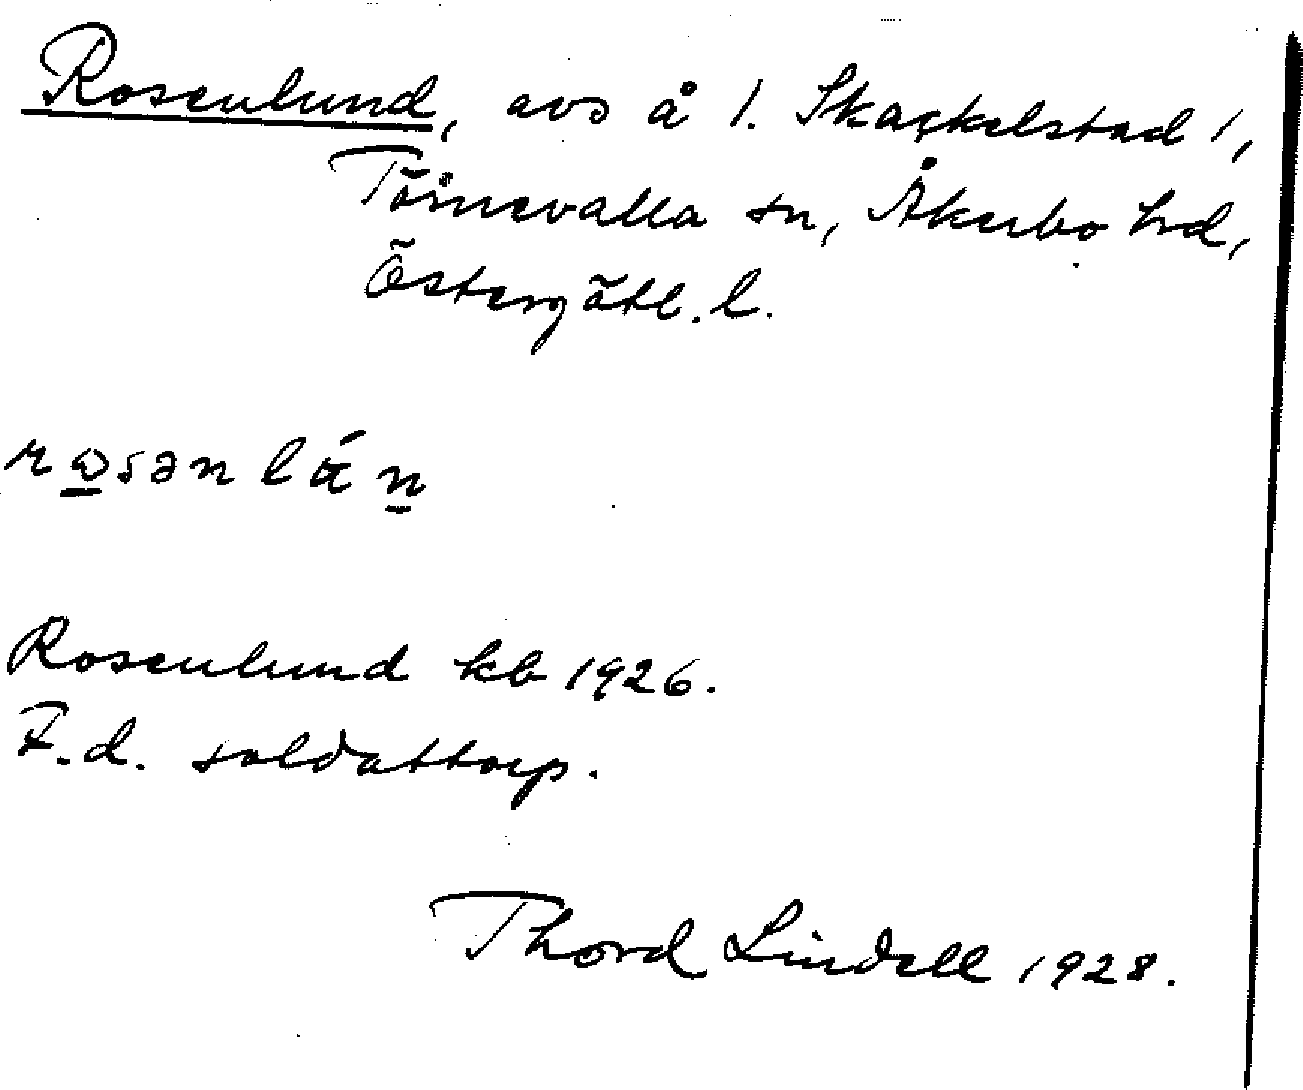 Rosenlund, avs å 1. Skackelstad 1,
Törnevalla sn, Åkerbo hd,
Östergötl. l.
Rosenlund kb 1926.
F.d. soldattorp.
Thord Lindell 1928.